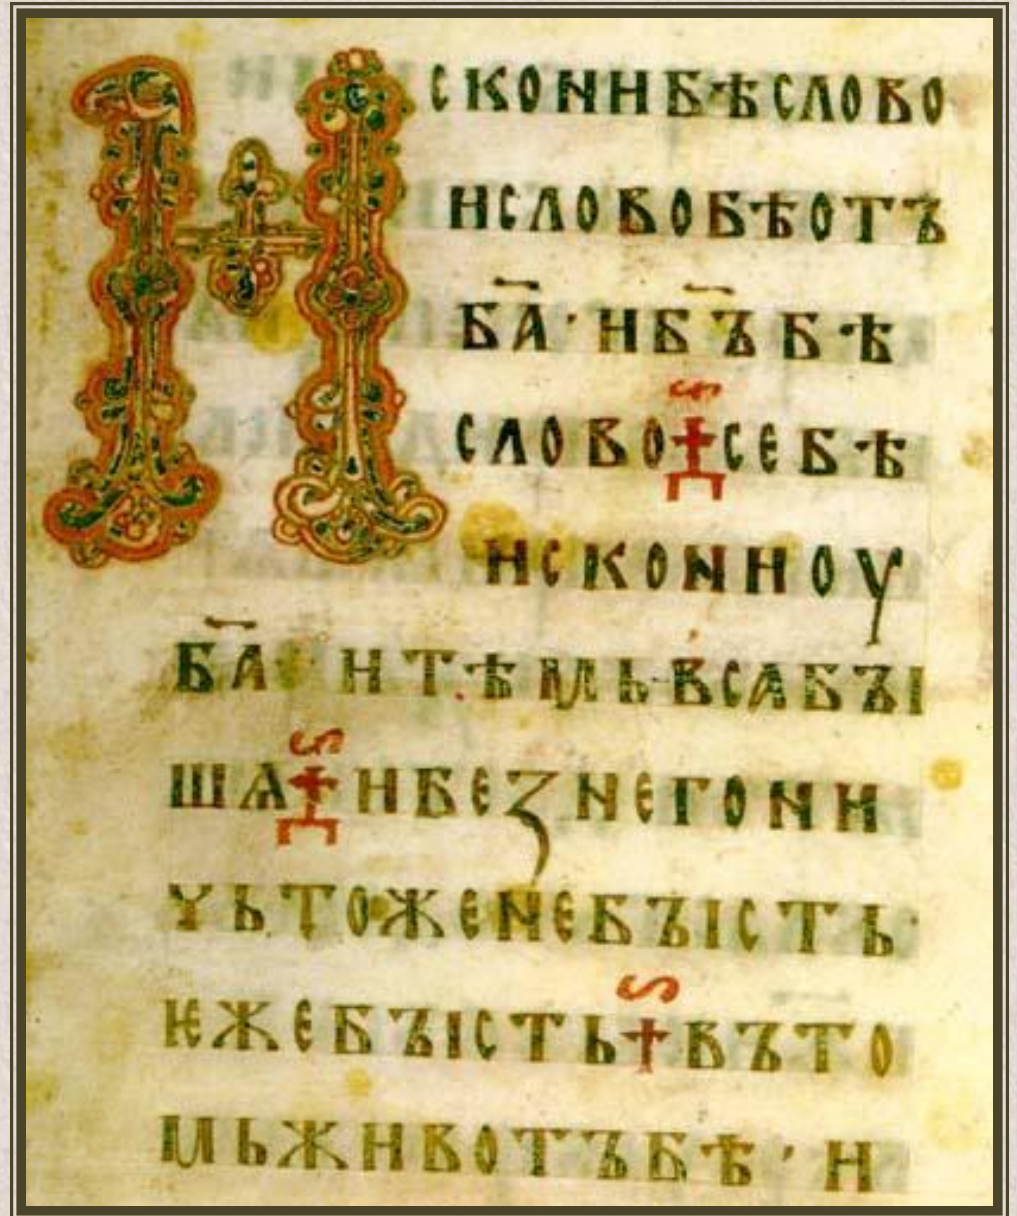 ИСКОНИБѢСЛОВО
ИСЛОВОБѢОТЪ
Б҃А · ИБ҃ЪБѢ
СЛОВО ☦ СЕБѢ
ИСКОНИОУ
Б҃А · ИТѢМЬВСАБЪІ
ШѦ ☦ ИБЕЗНЕГОНИ
ЧЬТОЖЕНЕБЪІСТЬ ·
ѤЖЕБЪІСТЬ † ВЪТО
МЬЖИВОТЪБѢ · И